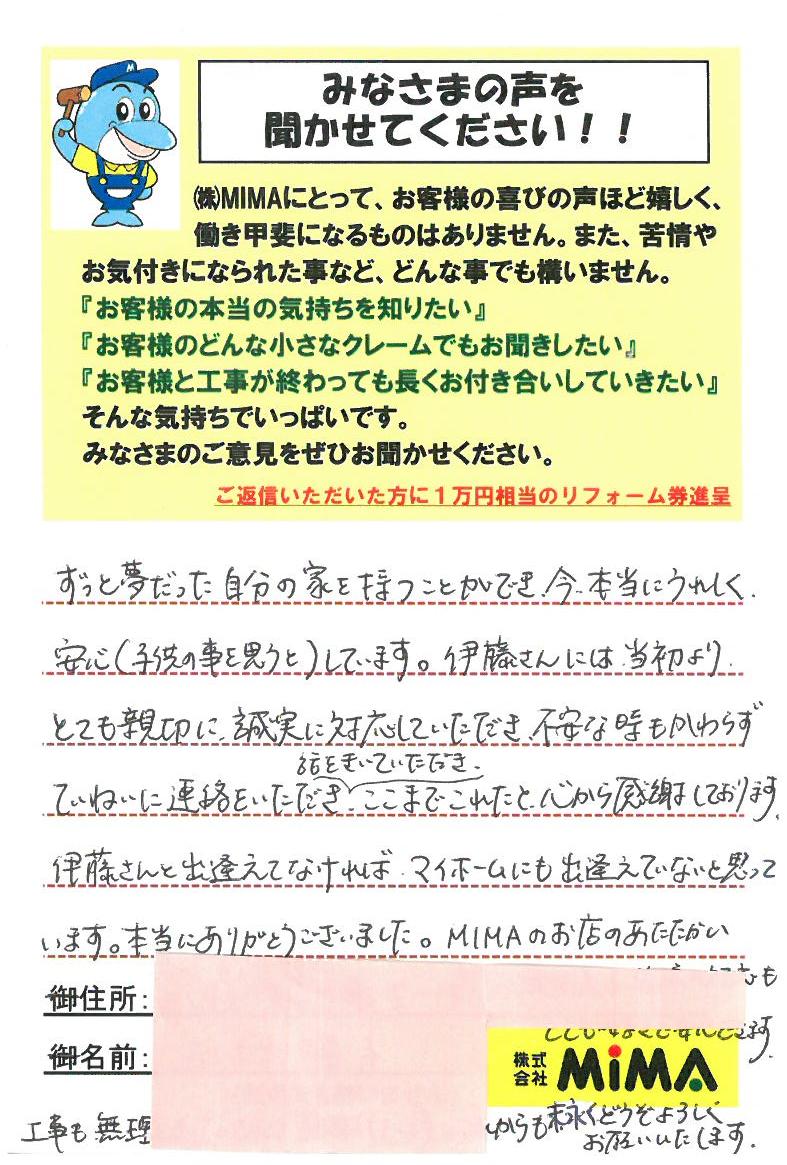 M
みなさまの声を
聞かせてください！！
㈱MIMAにとって、お客様の喜びの声ほど嬉しく、
働き甲斐になるものはありません。また、苦情や
お気付きになられた事など、どんな事でも構いません。
『お客様の本当の気持ちを知りたい』
『お客様のどんな小さなクレームでもお聞きしたい』
『お客様と工事が終わっても長くお付き合いしていきたい』
そんな気持ちでいっぱいです。
みなさまのご意見をぜひお聞かせください。
ご返信いただいた方に１万円相当のリフォーム券進呈
ずっと夢だった自分の家を持つことができ、今、本当にうれしく、
安心（子供の事を思うと）しています。伊藤さんには、当初より、
とても親切に、誠実に対応していただき、不安な時もかわらず
話をきいていただき、
ていねいに連絡をいただき、ここまでこれたと、心から感謝しております。
伊藤さんと出逢えてなければ、マイホームにも出逢えていないと思って
います。本当にありがとうございました。MIMAのお店のあたたかい
も
御住所：
ます。
御名前：
株式会社 MiMA
工事も無理
からも末永くどうぞよろしく
お願いいたします。